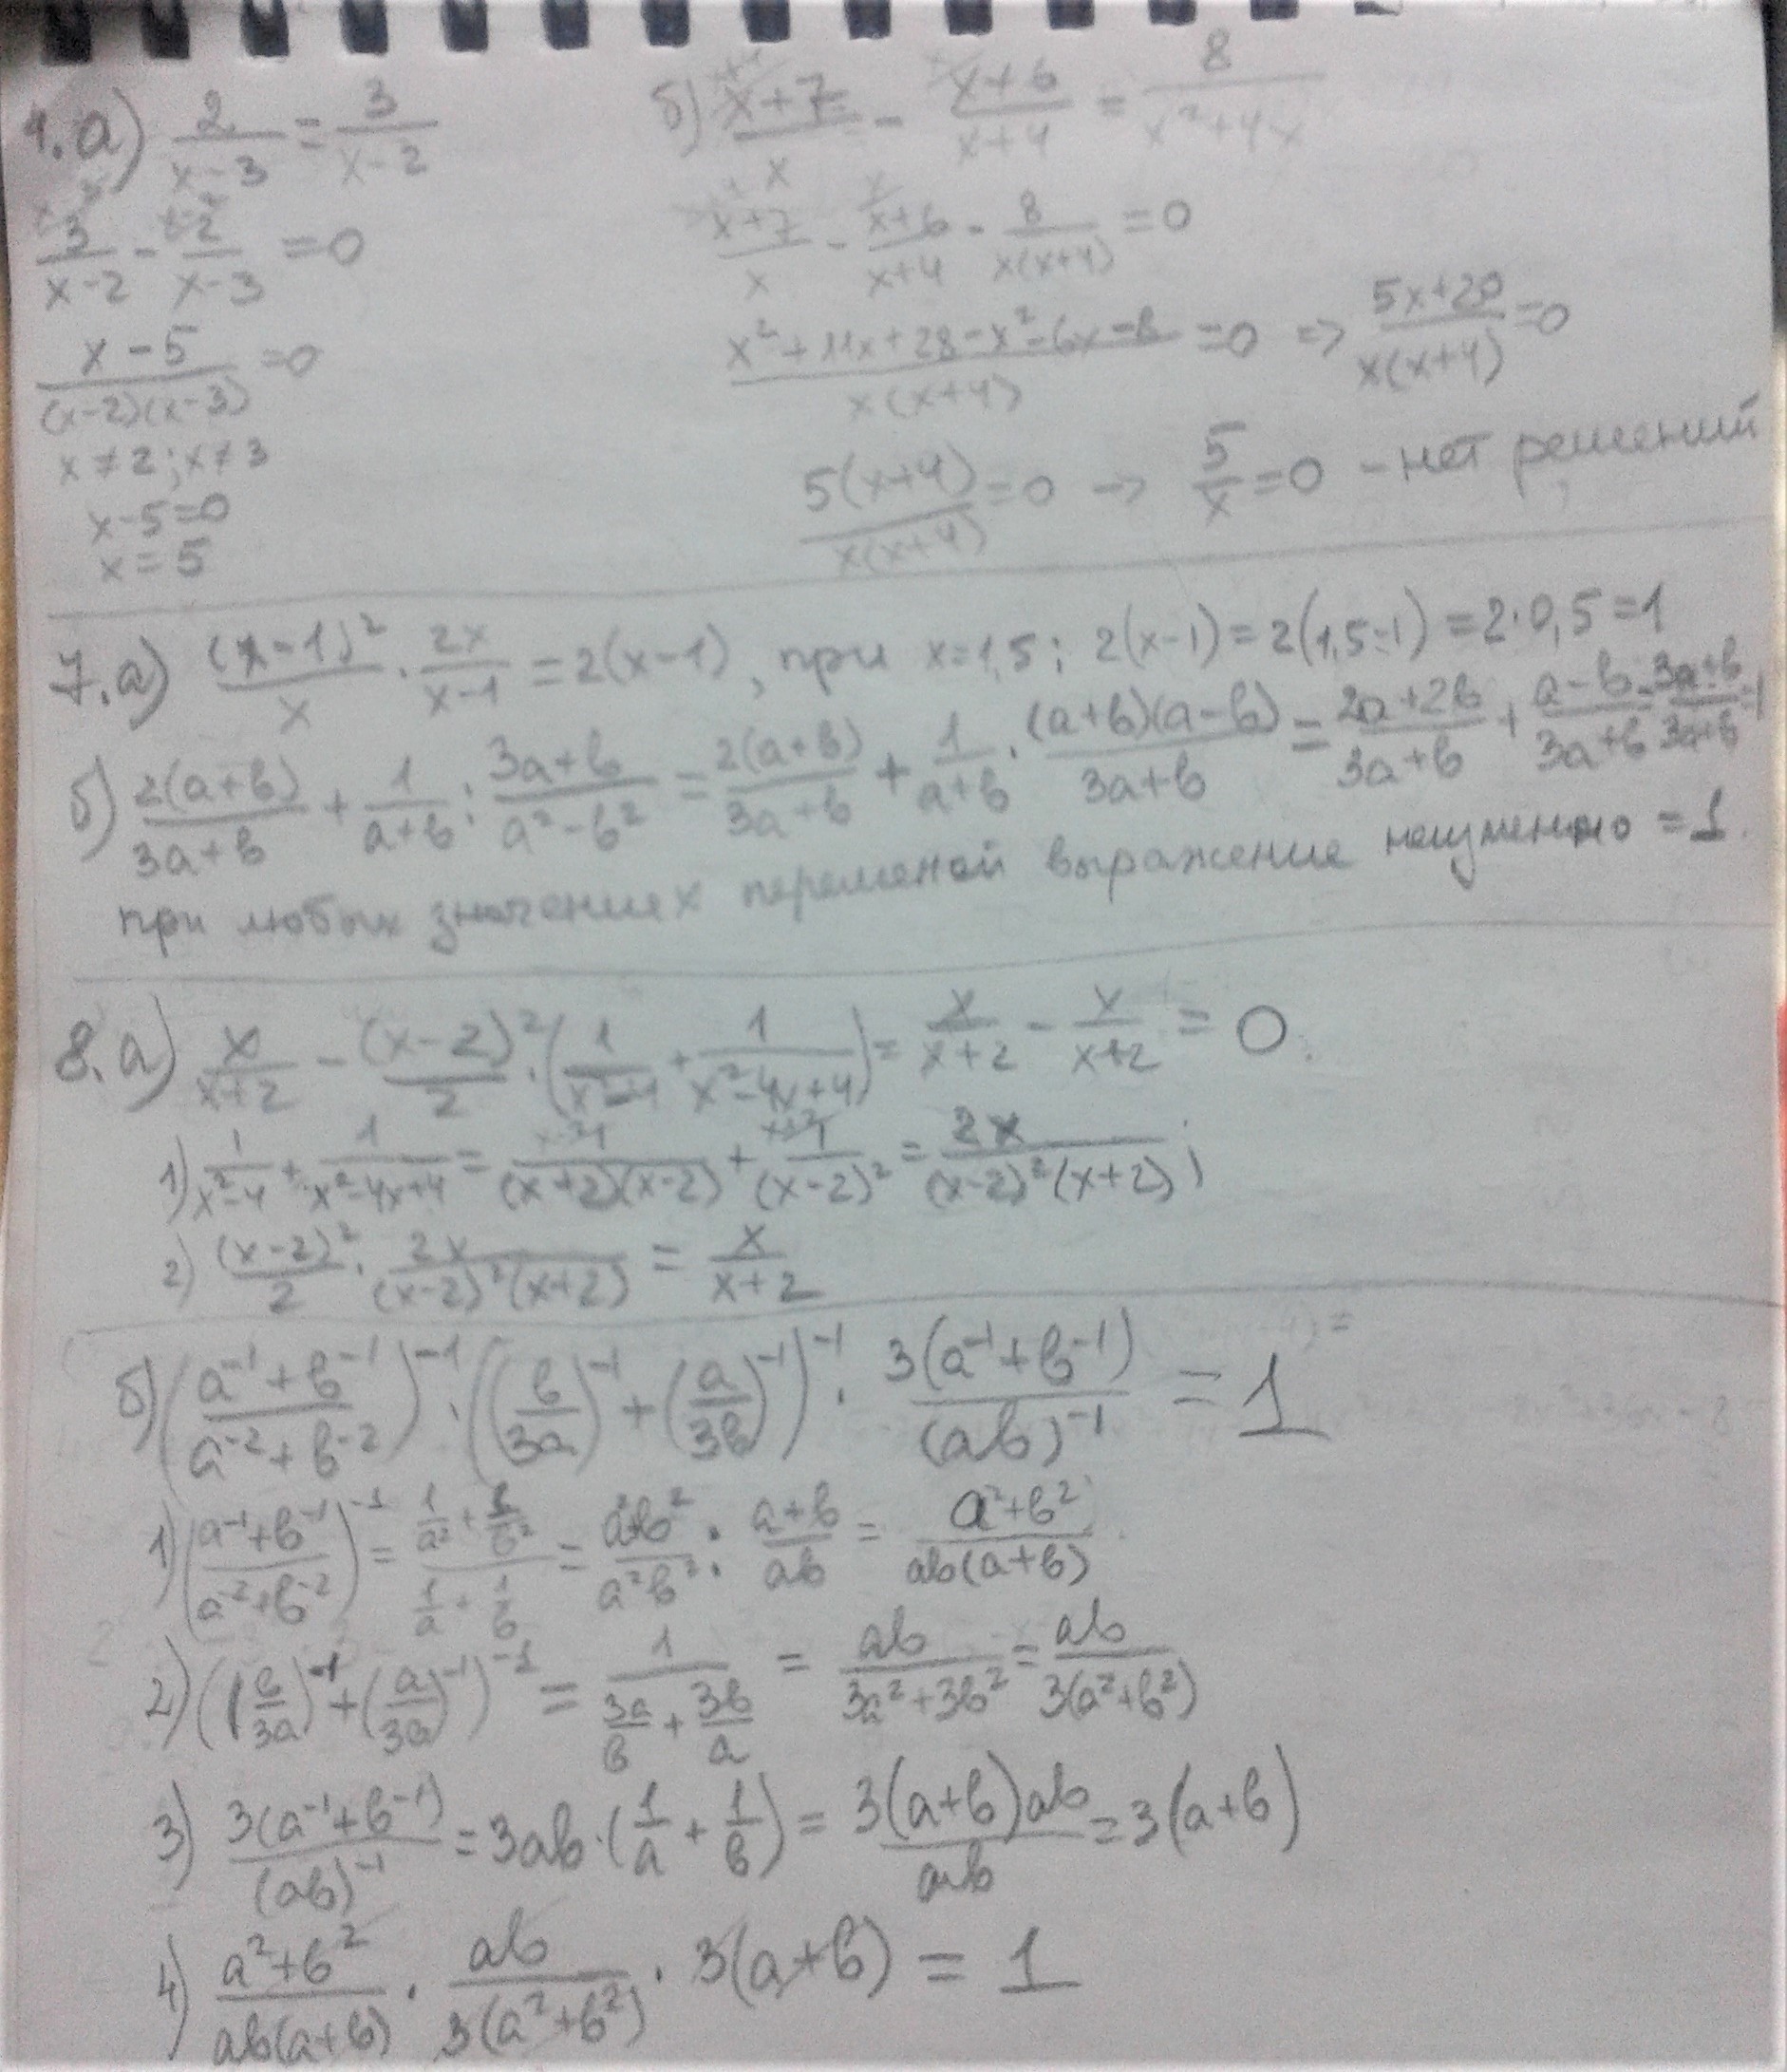 1.а) 2/(x-3) = 3/(x-2)
3/(x-2) - 2/(x-3) = 0
(x-5)/((x-2)(x-3)) = 0
x ≠ 2; x ≠ 3
x-5=0
x = 5
б) (x+7)/x - (x+6)/(x+4) = 8/(x²+4x)
(x+7)/x - (x+6)/(x+4) - 8/(x(x+4)) = 0
(x²+11x+28-x²-6x-8)/(x(x+4)) = 0 => (5x+20)/(x(x+4)) = 0
5(x+4)/(x(x+4)) = 0 -> 5/x = 0 - нет решений
7.а) (x-1)²/x · 2x/(x-1) = 2(x-1), при x=1,5; 2(x-1) = 2(1,5-1) = 2·0,5 = 1
б) 2(a+b)/(3a+b) + 1/(a+b) : (3a+b)/(a²-b²) = 2(a+b)/(3a+b) + 1/(a+b) · (a+b)(a-b)/(3a+b) = (2a+2b)/(3a+b) + (a-b)/(3a+b) = (3a+b)/(3a+b) = 1
при любых значениях переменой выражение = 1.
8.а) x/(x+2) - (x-2)²/2 · (1/(x²-4) + 1/(x²-4x+4)) = x/(x+2) - x/(x+2) = 0.
1) 1/(x²-4) + 1/(x²-4x+4) = 1/((x+2)(x-2)) + 1/(x-2)² = 2x/((x-2)²(x+2));
2) (x-2)²/2 · 2x/((x-2)²(x+2)) = x/(x+2)
б) ((a⁻¹+b⁻¹)/(a⁻²+b⁻²))⁻¹ · ((b/3a)⁻¹ + (a/3b)⁻¹)⁻¹ · 3(a⁻¹+b⁻¹)/(ab)⁻¹ = 1
1) ((a⁻¹+b⁻¹)/(a⁻²+b⁻²))⁻¹ = (1/a² + 1/b²)/(1/a + 1/b) = (a²+b²)/(a²b²) : (a+b)/(ab) = (a²+b²)/(ab(a+b))
2) ((b/3a)⁻¹ + (a/3b)⁻¹)⁻¹ = 1/(3a/b + 3b/a) = ab/(3a²+3b²) = ab/(3(a²+b²))
3) 3(a⁻¹+b⁻¹)/(ab)⁻¹ = 3ab·(1/a + 1/b) = 3(a+b)ab/(ab) = 3(a+b)
4) (a²+b²)/(ab(a+b)) · ab/(3(a²+b²)) · 3(a+b) = 1